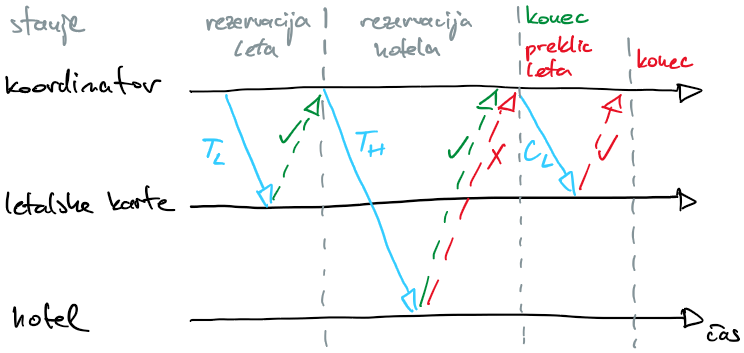 stanje
rezervacija
leta
rezervacija
hotela
konec
preklic
leta
konec
koordinator
T_L
✓
T_H
✓
X
C_L
✓
letalske karte
hotel
čas